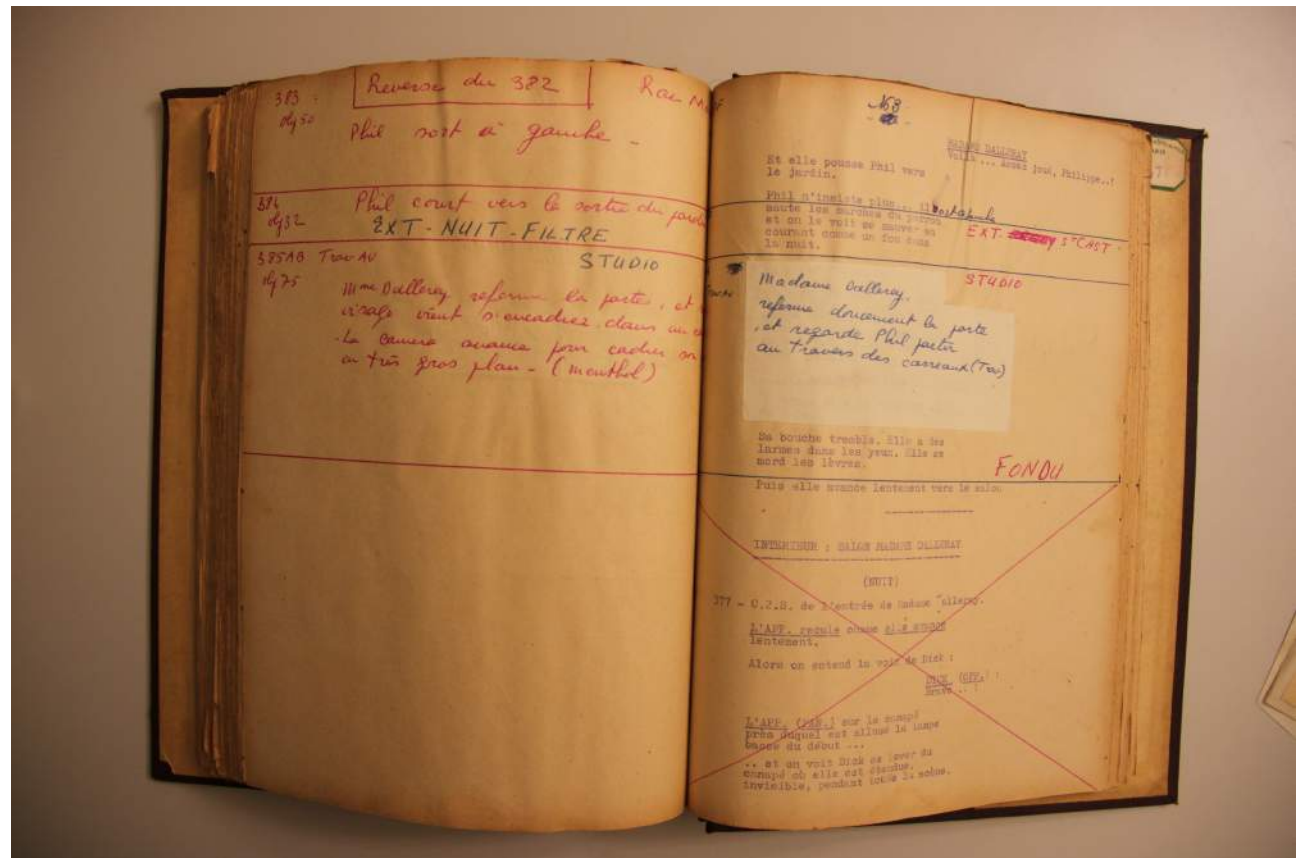 383 - Reverse du 382
obj 50
Phil sort à gauche -
384 Phil court vers la sortie du
obj 32 EXT - NUIT - FILTRE
385AB Trav AV STUDIO
obj 75
Mme Dalleray referme la porte, et
visage vient s'encadrer dans un
- La caméra avance pour cadrer
en très gros plan - (menthol)
MADAME DALLERAY
Voilà ... Assez joué, Philippe..!
Et elle pousse Phil vers
le jardin.
Phil n'insiste plus... il
saute les marches du perron
et on le voit se sauver en
courant comme un fou dans
la nuit.
EXT - St CAST
STUDIO
Madame Dalleray,
referme doucement la porte
, et regarde Phil partir
au travers des carreaux (Trav)
Sa bouche tremble. Elle a des
larmes dans les yeux. Elle se
mord les lèvres.
FONDU
Puis elle avance lentement vers le salon
INTERIEUR : SALON MADAME DALLERAY
(NUIT)
377 - C.2.S. de l'entrée de Madame Dalleray.
L'APP. recule comme elle avance
lentement.
Alors on entend la voix de Dick :
DICK (OFF.) :
Bravo .. !
L'APP. (PAN.) sur le canapé
près duquel est allumé la lampe
basse du début ...
.. et on voit Dick se lever du
canapé où elle est étendue,
invisible, pendant toute la scène.